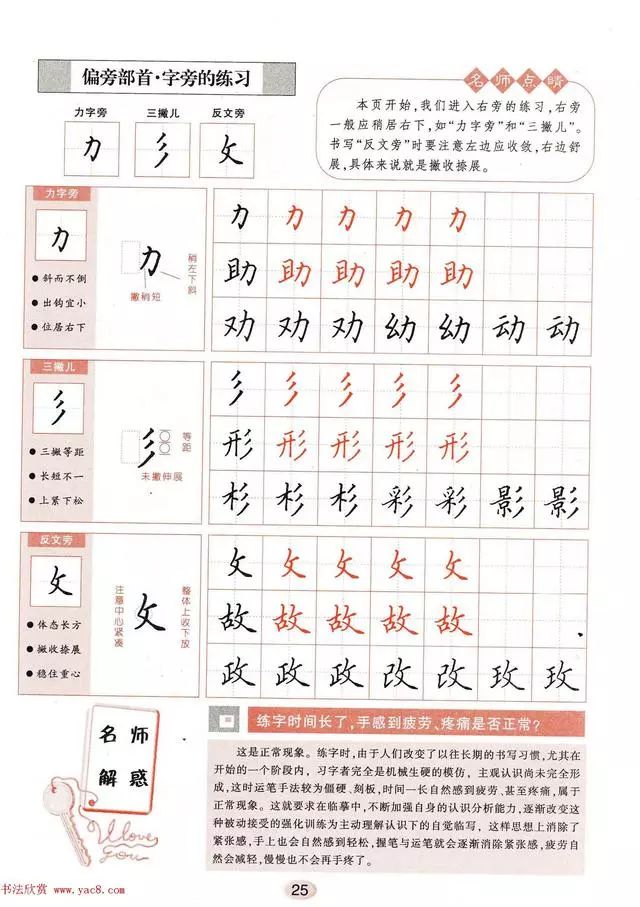 偏旁部首·字旁的练习
力字旁 三撇儿 反文旁
力 彡 攵
名师点睛
本页开始,我们进入右旁的练习,右旁
一般应稍居右下,如“力字旁”和“三撇儿”。
书写“反文旁”时要注意左边应收敛,右边舒
展,具体来说就是撇收捺展。
力字旁
力
斜而不倒
出钩宜小
位居右下
力
稍左下斜
撇稍短
力 力 力 力 力
助 助 助 助 助
劝 劝 劝 幼 幼 动 动
三撇儿
彡
三撇等距
长短不一
上紧下松
彡
等距
末撇伸展
彡 彡 彡 彡 彡
形 形 形 形 形
杉 杉 杉 彩 彩 影 影
反文旁
攵
体态长方
撇收捺展
稳住重心
注意中心紧凑
攵
整体上收下放
攵 攵 攵 攵 攵
故 故 故 故 故
政 政 政 改 改 玫 玫
名师
解惑
I love
you
练字时间长了,手感到疲劳、疼痛是否正常?
这是正常现象。练字时,由于人们改变了以往长期的书写习惯,尤其在
开始的一个阶段内,习字者完全是机械生硬的模仿,主观认识尚未完全形
成,这时运笔手法较为僵硬、刻板,时间一长自然感到疲劳、甚至疼痛,属于
正常现象。这就要求在临摹中,不断加强自身的认识分析能力,逐渐改变这
种被动接受的强化训练为主动理解认识下的自觉临写,这样思想上消除了
紧张感,手上也会自然感到轻松,握笔与运笔就会逐渐消除紧张感,疲劳自
然会减轻,慢慢也不会再手疼了。
25
书法欣赏 www.yac8.com